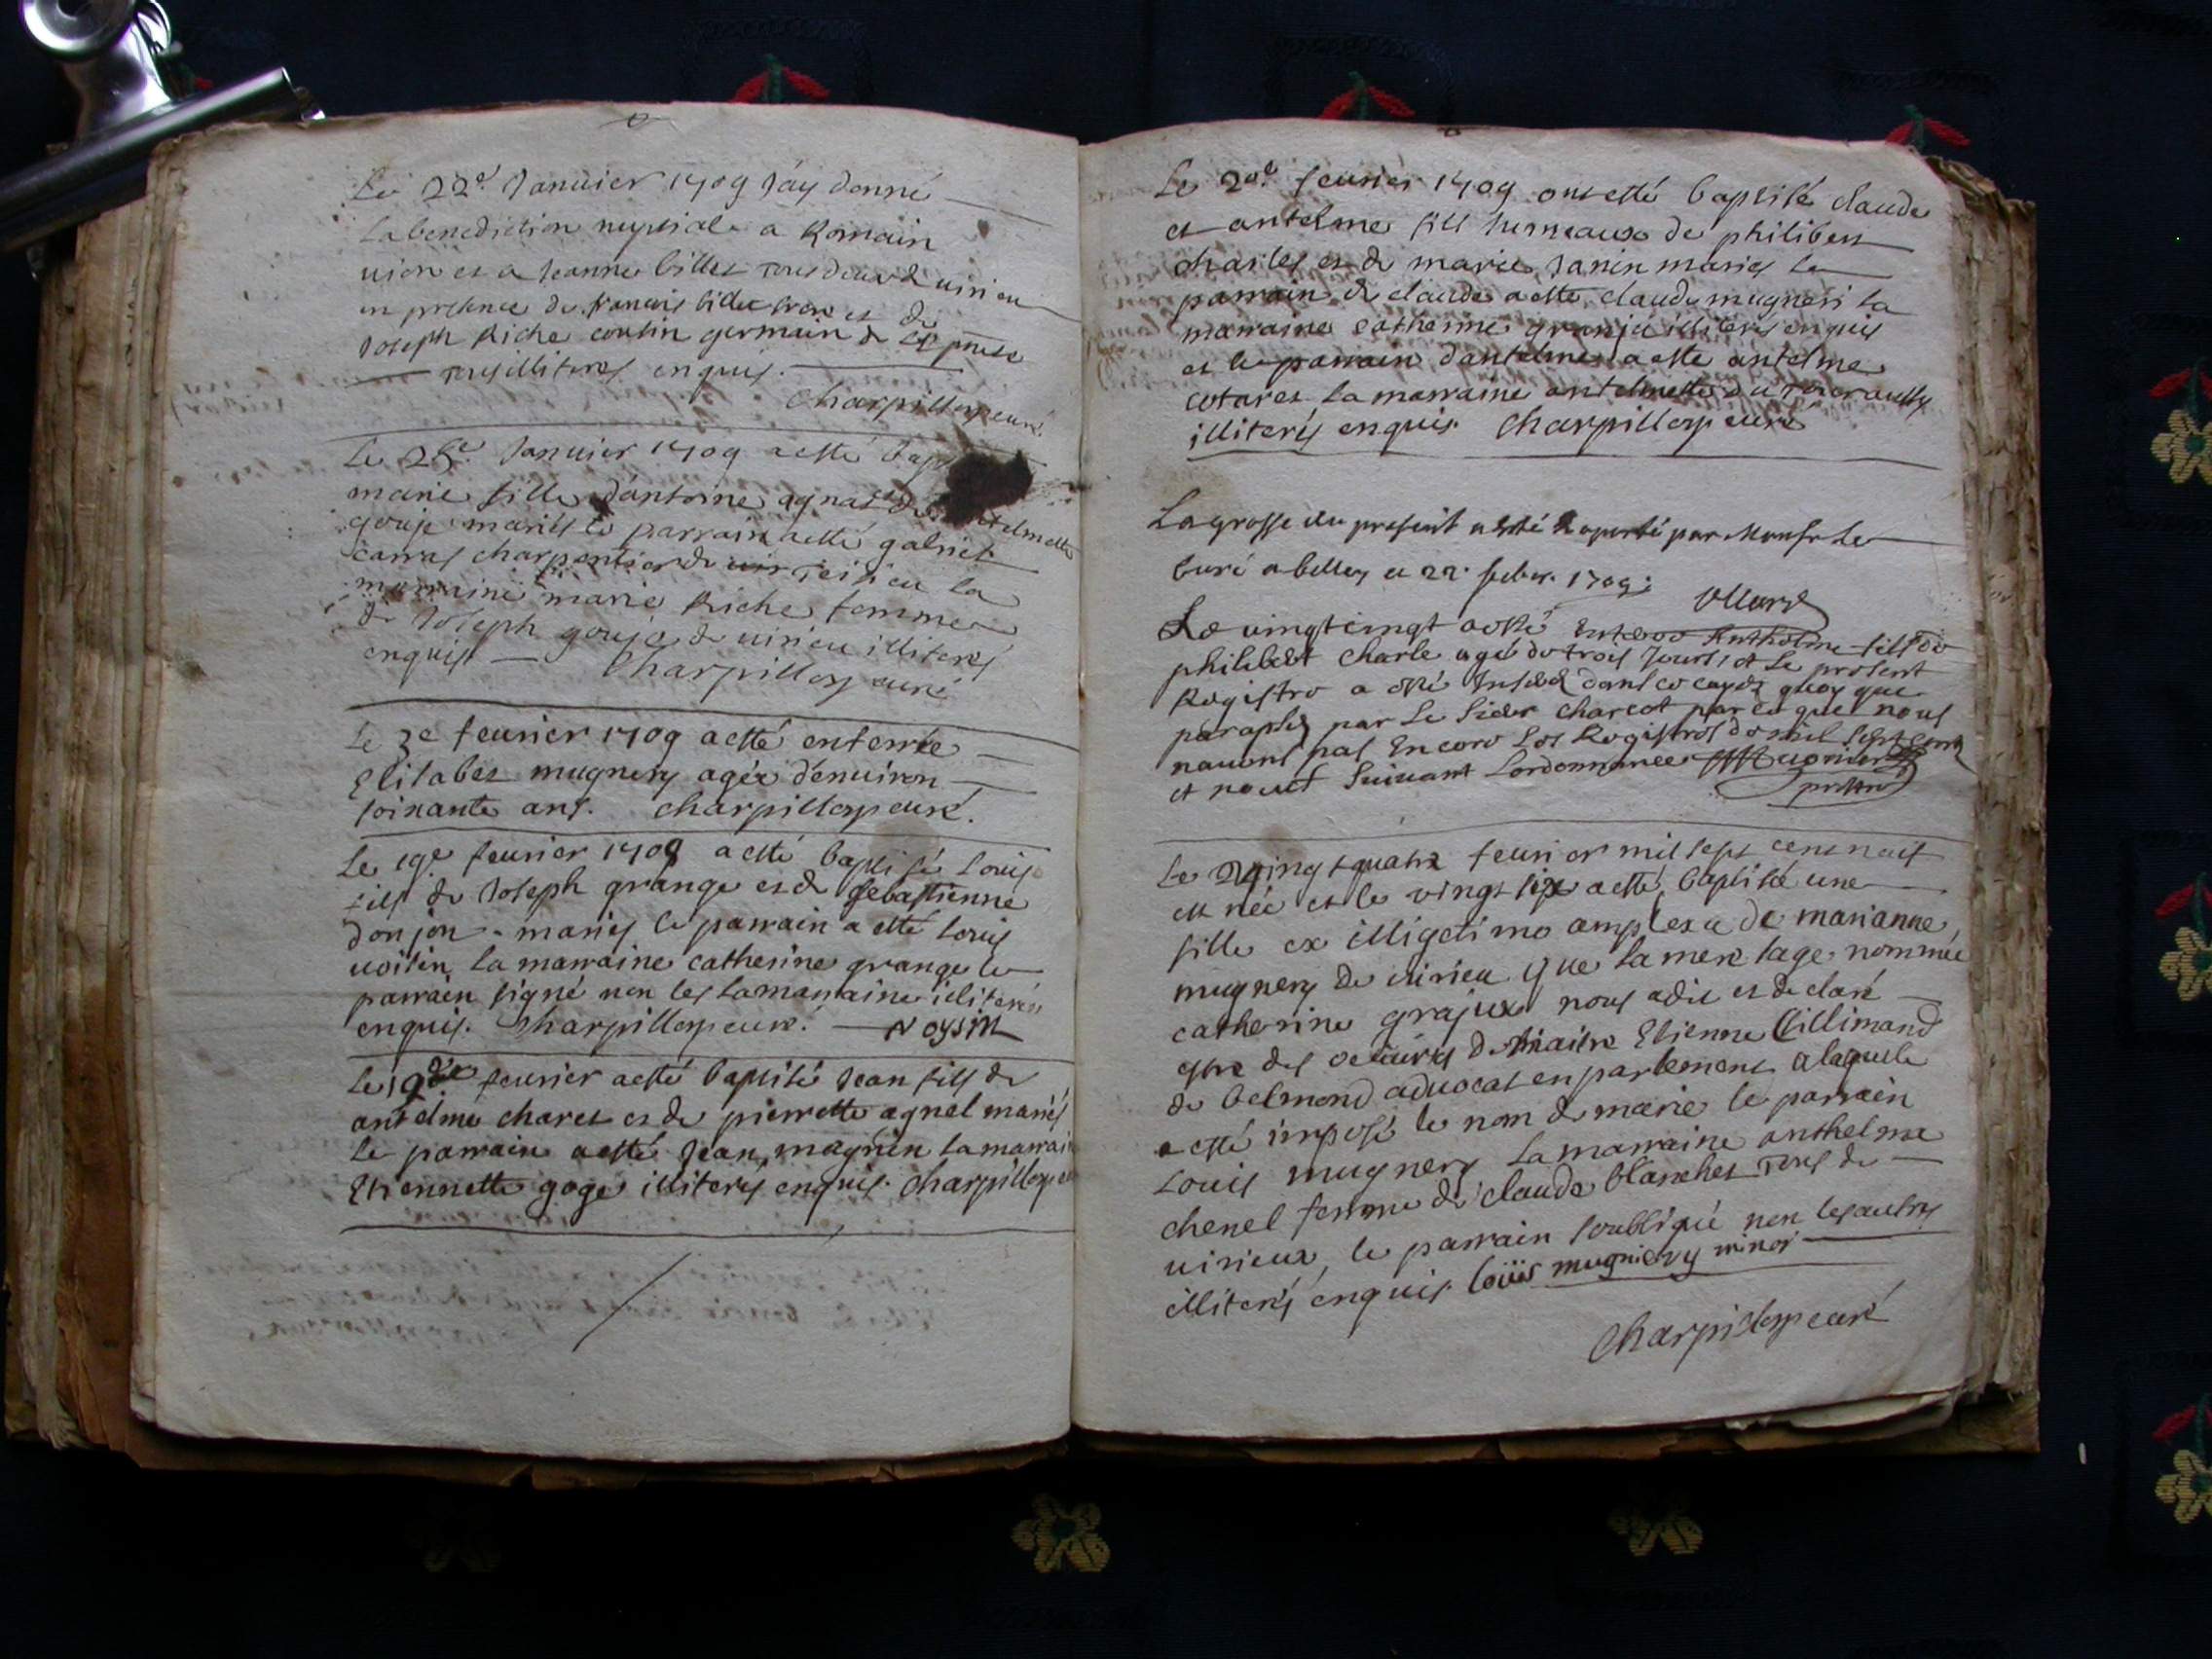 Le 22e Januier 1709 Jay donné
la benediction nuptiale a Romain
uion et a Jeanne billet tous deux de uirieu
en presence de francois billet frere et de
Joseph Riche cousin germain de
tous illiterés enquis.
Charpillon curé
Le 25e Januier 1709 a esté bap
marie fille d'antoine agnas
gouje mariés le parrain a esté gabriel
carras charpentier de la
marraine marie Riche femme
de Joseph gouje de uirieu illiterés
enquis Charpillon curé
Le 3e feurier 1709 a esté enterrée
Elisabet mugnery agée d'enuiron
soixante ans. Charpillon curé.
Le 19e feurier 1709 a esté baptisé Louis
fils de Joseph grange et de sebastienne
donjon mariés le parrain a esté Louis
uoisin la marraine catherine grange le
parrain signé non les la marraine illiterée
enquis. Charpillon curé. Noysin
Le 19e feurier a esté baptisé Jean fils de
antelme charet et de pierrette agnel mariés
le parrain a esté Jean magnin la marrai
Etiennette goge illiterés enquis. Charpillon cu
Le 20e feurier 1709 ont esté baptisé claude
et antelme fils jumeaux de philibert
charles et de marie Janin mariés le
parrain de claude a esté claude mugneri la
marraine catherine granju illiterés enquis
et le parrain d'antelme a esté antelme
cotaret la marraine antelmette du aussy
illiterés enquis. Charpillon curé
La grosse du present a esté aporté par Monsr le
Curé a belley ce 22. febur. 1709.
Le uingt cinqt a esté Enterré Anthelme fils de
philibert Charle agé de trois Jours et Le present
Registre a esté Inseré dans ce cayer quoy que
paraphé par Le Sieur charcot parce que nous
nauons pas Encore Les Registres de mil sept cent
et neuf suiuant Lordonnance
Le vingt quatre feurier mil sept cent neuf
est née et le vingt six a esté baptisé une
fille ex illigetimo amplexu de marianne
mugnery de uirieu que la mere sage nommée
catherine grajux nous a dit et declaré
estre des oeuures de Maitre Etienne Cillimand
de belmond aduocat en parlement a laquelle
a esté imposé le nom de marie le parrain
Louis mugnery la marraine anthelme
chenel femme de claude blanchet tous de
uirieux, le parrain soubsigné non les autres
illiterés enquis. Loüis mugniery minor
Charpillon curé